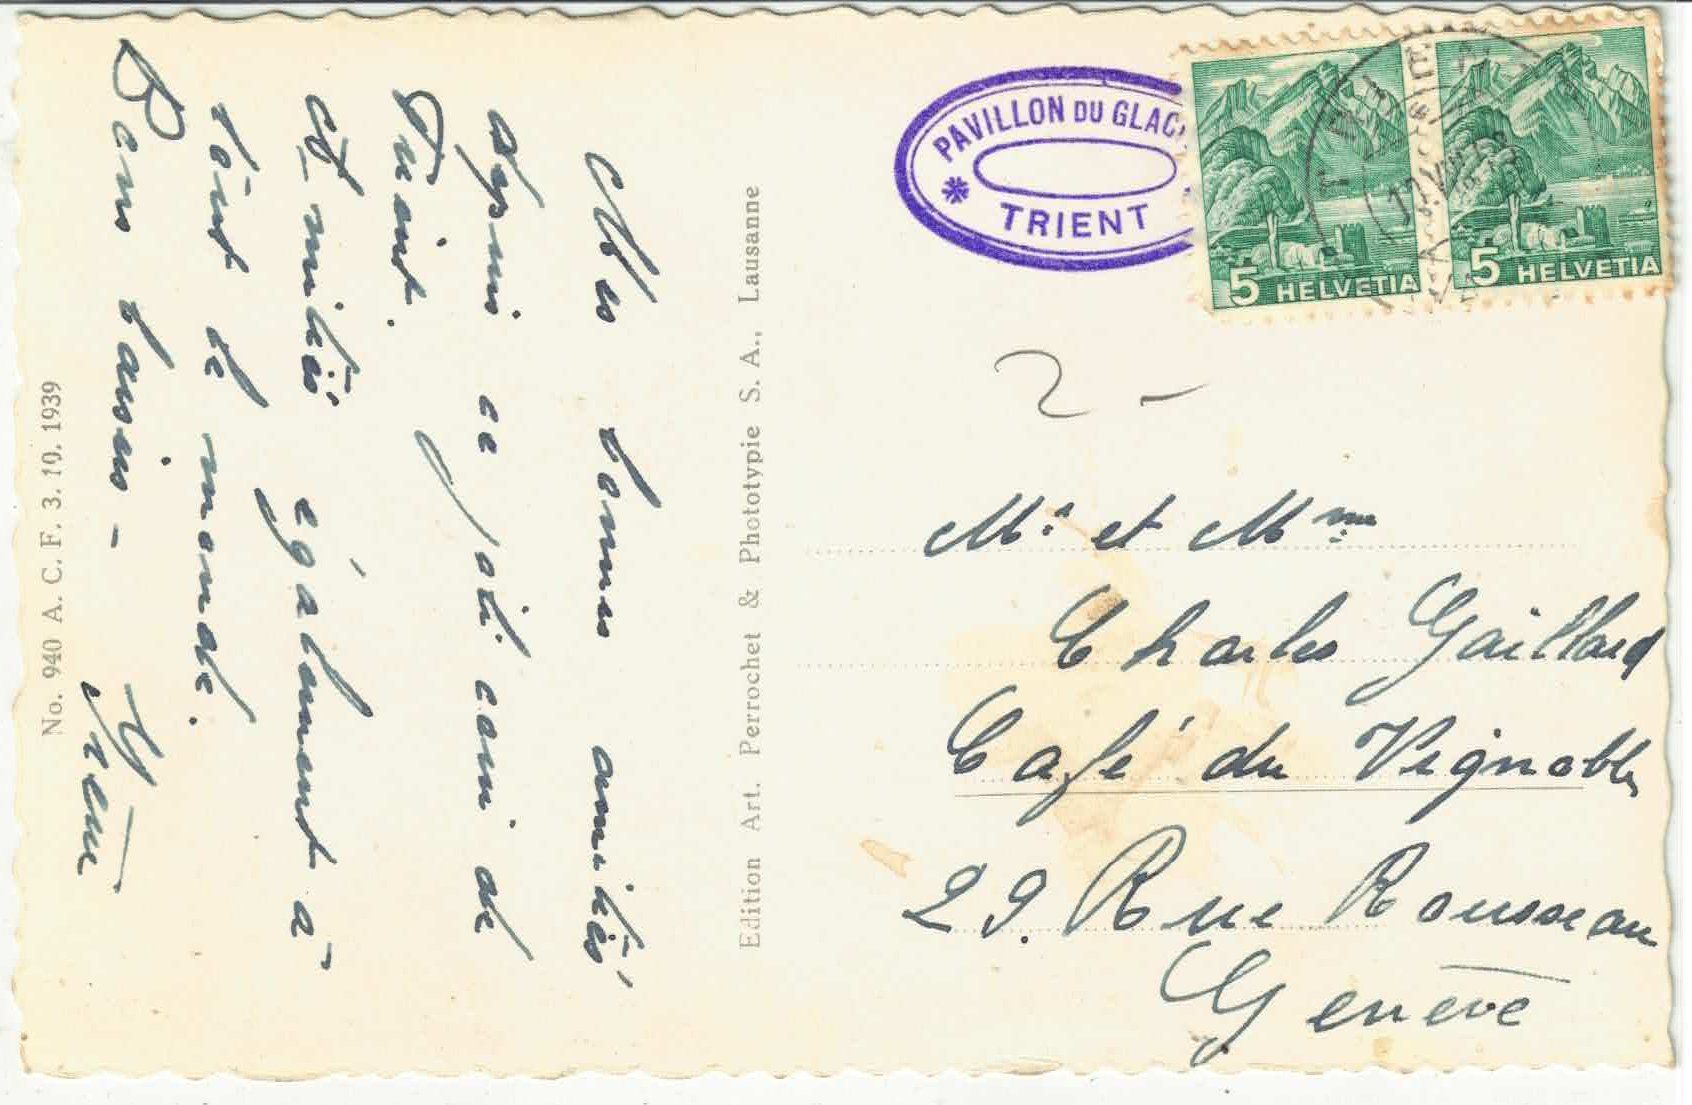 Mes bonnes amitiés
depuis ce joli coin de
Trient.
Amitiés également à
tout le monde.
Bons baisers -
No. 940 A. C. F. 3. 10. 1939
Edition Art. Perrochet & Phototypie S. A., Lausanne
PAVILLON DU GLAC
TRIENT
5 HELVETIA
5 HELVETIA
2 -
Mr. et Mme
Charles Gaillard
Café du Vignoble
29. Rue Rousseau
Genève